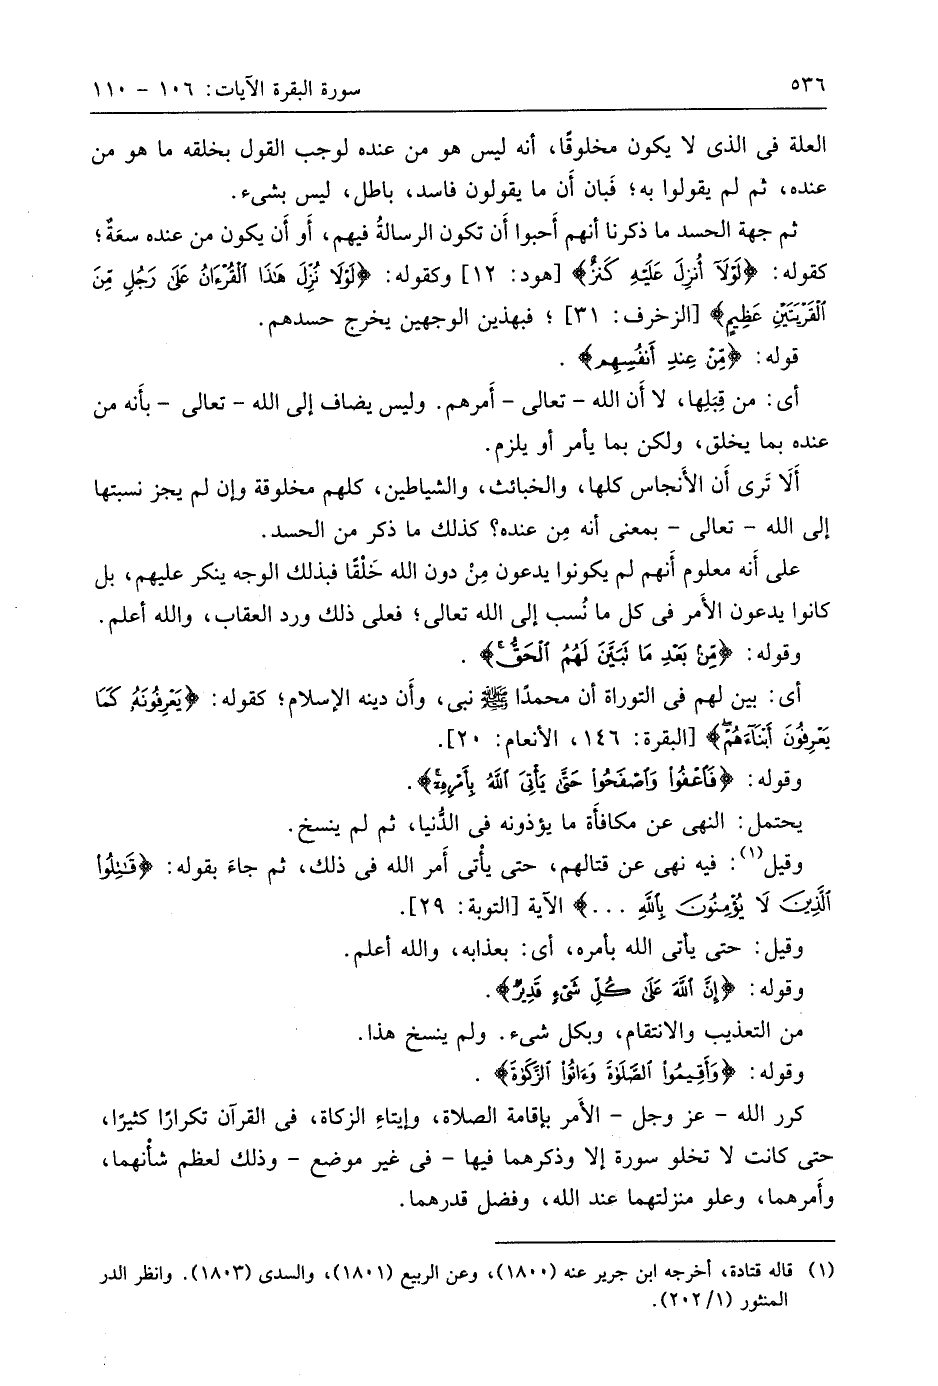 ٥٣٦ سورة البقرة الآيات: ١٠٦ - ١١٠
العلة فى الذى لا يكون مخلوقًا، أنه ليس هو من عنده لوجب القول بخلقه ما هو من
عنده، ثم لم يقولوا به؛ فَبان أَن ما يقولون فاسد، باطل، ليس بشىء.
ثم جهة الحسد ما ذكرنا أنهم أَحبوا أَن تكون الرسالةُ فيهم، أَو أَن يكون من عنده سعَةٌ؛
كقوله: ﴿لَوْلَآ أُنزِلَ عَلَيْهِ كَنزٌ﴾ [هود: ١٢] وكقوله: ﴿لَوْلَا نُزِّلَ هَٰذَا ٱلْقُرْءَانُ عَلَىٰ رَجُلٍ مِّنَ
ٱلْقَرْيَتَيْنِ عَظِيمٍ﴾ [الزخرف: ٣١] ؛ فبهذين الوجهين يخرج حسدهم.
قوله: ﴿مِّنْ عِندِ أَنفُسِهِم﴾ .
أى: من قِبَلِها، لا أَن الله - تعالى - أَمرهم. وليس يضاف إلى الله - تعالى - بأنه من
عنده بما يخلق، ولكن بما يأمر أو يلزم.
أَلَا تَرى أَن الأَنجاس كلها، والخبائث، والشياطين، كلهم مخلوقة وإن لم يجز نسبتها
إلى الله - تعالى - بمعنى أنه مِن عنده؟ كذلك ما ذكر من الحسد.
على أَنه معلوم أَنهم لم يكونوا يدعون مِنْ دون الله خَلْقًا فبذلك الوجه ينكر عليهم، بل
كانوا يدعون الأَمر فى كل ما نُسب إلى الله تعالى؛ فعلى ذلك ورد العقاب، والله أعلم.
وقوله: ﴿مِّنۢ بَعْدِ مَا تَبَيَّنَ لَهُمُ ٱلْحَقُّ﴾ .
أى: بين لهم فى التوراة أن محمدًا ﷺ نبى، وأَن دينه الإسلام؛ كقوله: ﴿يَعْرِفُونَهُۥ كَمَا
يَعْرِفُونَ أَبْنَآءَهُمْ﴾ [البقرة: ١٤٦، الأنعام: ٢٠].
وقوله: ﴿فَٱعْفُوا۟ وَٱصْفَحُوا۟ حَتَّىٰ يَأْتِىَ ٱللَّهُ بِأَمْرِهِۦٓ﴾.
يحتمل: النهى عن مكافأَة ما يؤذونه فى الدُّنيا، ثم لم ينسخ.
وقيل(١): فيه نهى عن قتالهم، حتى يأْتى أَمر الله فى ذلك، ثم جاءَ بقوله: ﴿قَٰتِلُوا۟
ٱلَّذِينَ لَا يُؤْمِنُونَ بِٱللَّهِ ...﴾ الآية [التوبة: ٢٩].
وقيل: حتى يأتى الله بأمره، أى: بعذابه، والله أعلم.
وقوله: ﴿إِنَّ ٱللَّهَ عَلَىٰ كُلِّ شَىْءٍ قَدِيرٌ﴾.
من التعذيب والانتقام، وبكل شىء. ولم ينسخ هذا.
وقوله: ﴿وَأَقِيمُوا۟ ٱلصَّلَوٰةَ وَءَاتُوا۟ ٱلزَّكَوٰةَ﴾ .
كرر الله - عز وجل - الأَمر بإقامة الصلاة، وإيتاءِ الزكاة، فى القرآن تكرارًا كثيرًا،
حتى كانت لا تخلو سورة إلا وذكرهما فيها - فى غير موضع - وذلك لعظم شأْنهما،
وأَمرهما، وعلو منزلتهما عند الله، وفضل قدرهما.
(١) قاله قتادة، أخرجه ابن جرير عنه (١٨٠٠)، وعن الربيع (١٨٠١)، والسدى (١٨٠٣). وانظر الدر
المنثور (٢٠٢/١).